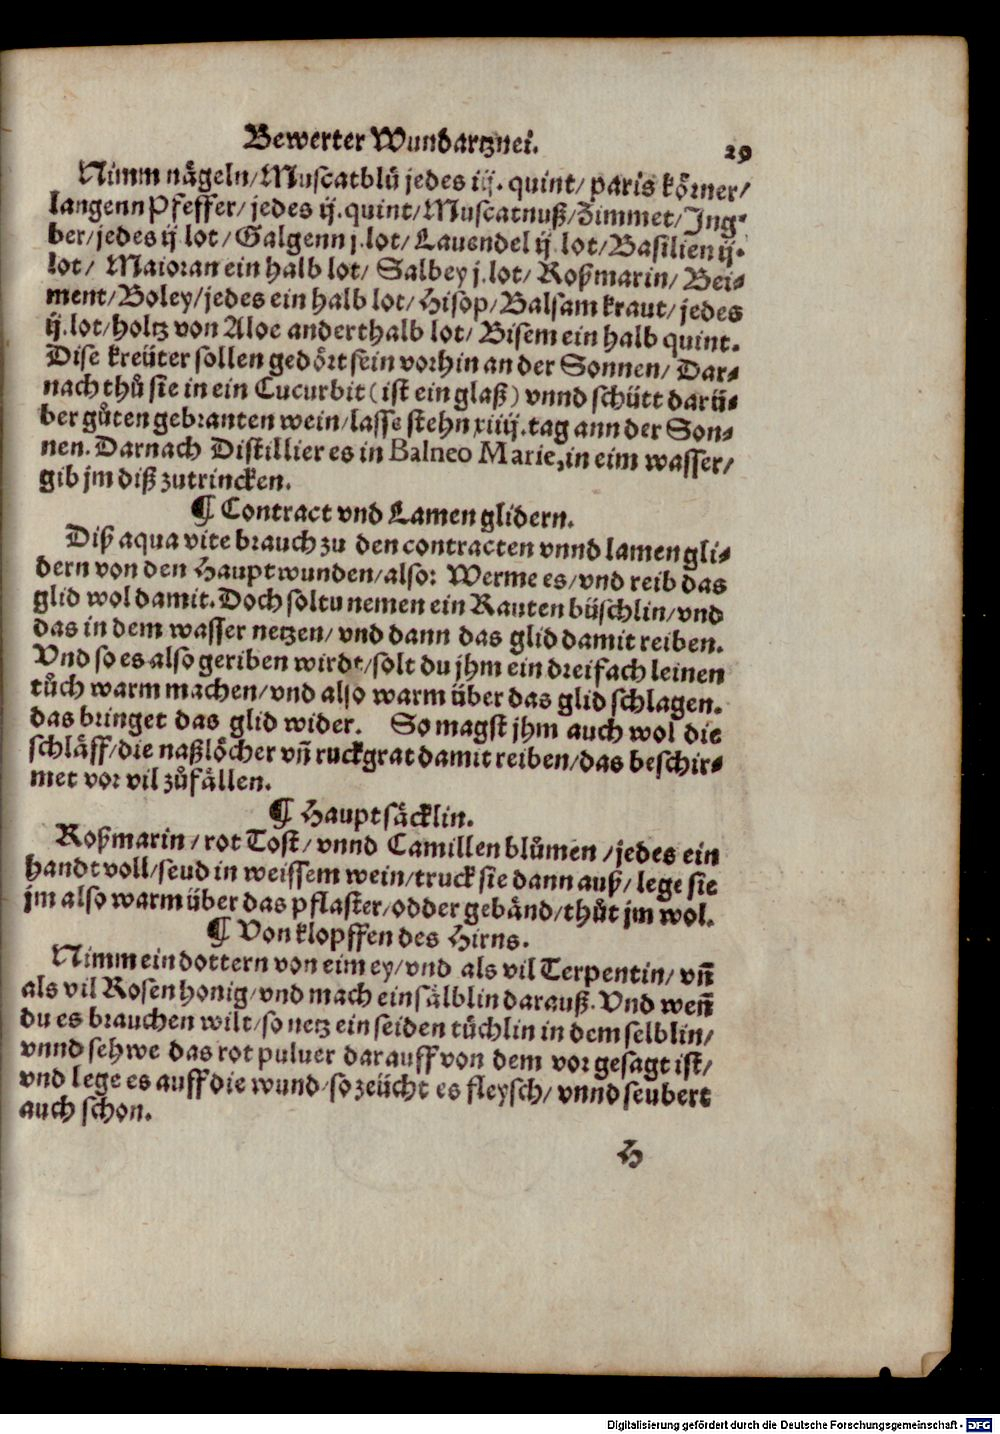 Bewerter Wundartznei. 29
Nimm nägeln/Muscatblü jedes iij. quint/ paris körner/
langenn Pfeffer/ jedes ij. quint/Muscatnuß/Zimmet/Jng⸗
ber/jedes ij lot/Galgenn j.lot/ Lauendel ij lot/Basilien ij.
lot/ Maioran ein halb lot/ Salbey j.lot/ Roßmarin/ Bei⸗
ment/Boley/jedes ein halb lot/Hisop/Balsam kraut/jedes
ij.lot/holtz von Aloe anderthalb lot/ Bisem ein halb quint.
Dise kreüter sollen gedört sein vorhin an der Sonnen/ Dar⸗
nach thů sie in ein Cucurbit (ist ein glaß) vnnd schütt darü⸗
ber gůten gebranten wein/lasse stehn xiiij.tag ann der Son⸗
nen. Darnach Distillier es in Balneo Marie,in eim wasser/
gib jm diß zutrincken.
¶ Contract vnd Lamen glidern.
Diß aqua vite brauch zu den contracten vnnd lamen gli⸗
dern von den Hauptwunden/also: Werme es/vnd reib das
glid wol damit. Doch soltu nemen ein Rauten büschlin/vnd
das in dem wasser netzen/ vnd dann das glid damit reiben.
Vnd so es also geriben wirdt/solt du jhm ein dreifach leinen
tůch warm machen/vnd also warm über das glid schlagen.
das bringet das glid wider. So magst jhm auch wol die
schläff/die naßlöcher vñ ruckgrat damit reiben/das beschir⸗
met vor vil zůfällen.
¶ Hauptsäcklin.
Roßmarin/rot Tost/ vnnd Camillen blůmen/jedes ein
handt voll/seud in weissem wein/truck sie dann auß/ lege sie
jm also warm über das pflaster/odder gebänd/thůt jm wol.
¶ Von klopffen des Hirns.
Nimm ein dottern von eim ey/vnd als vil Terpentin/ vñ
als vil Rosenhonig/vnd mach ein sälblin darauß. Vnd weñ
du es brauchen wilt/so netz ein seiden tüchlin in dem selblin/
vnnd sehwe das rot puluer darauff von dem vor gesagt ist/
vnd lege es auff die wund/so zeücht es fleysch/ vnnd seubert
auch schon.
H
Digitalisierung gefördert durch die Deutsche Forschungsgemeinschaft - DFG